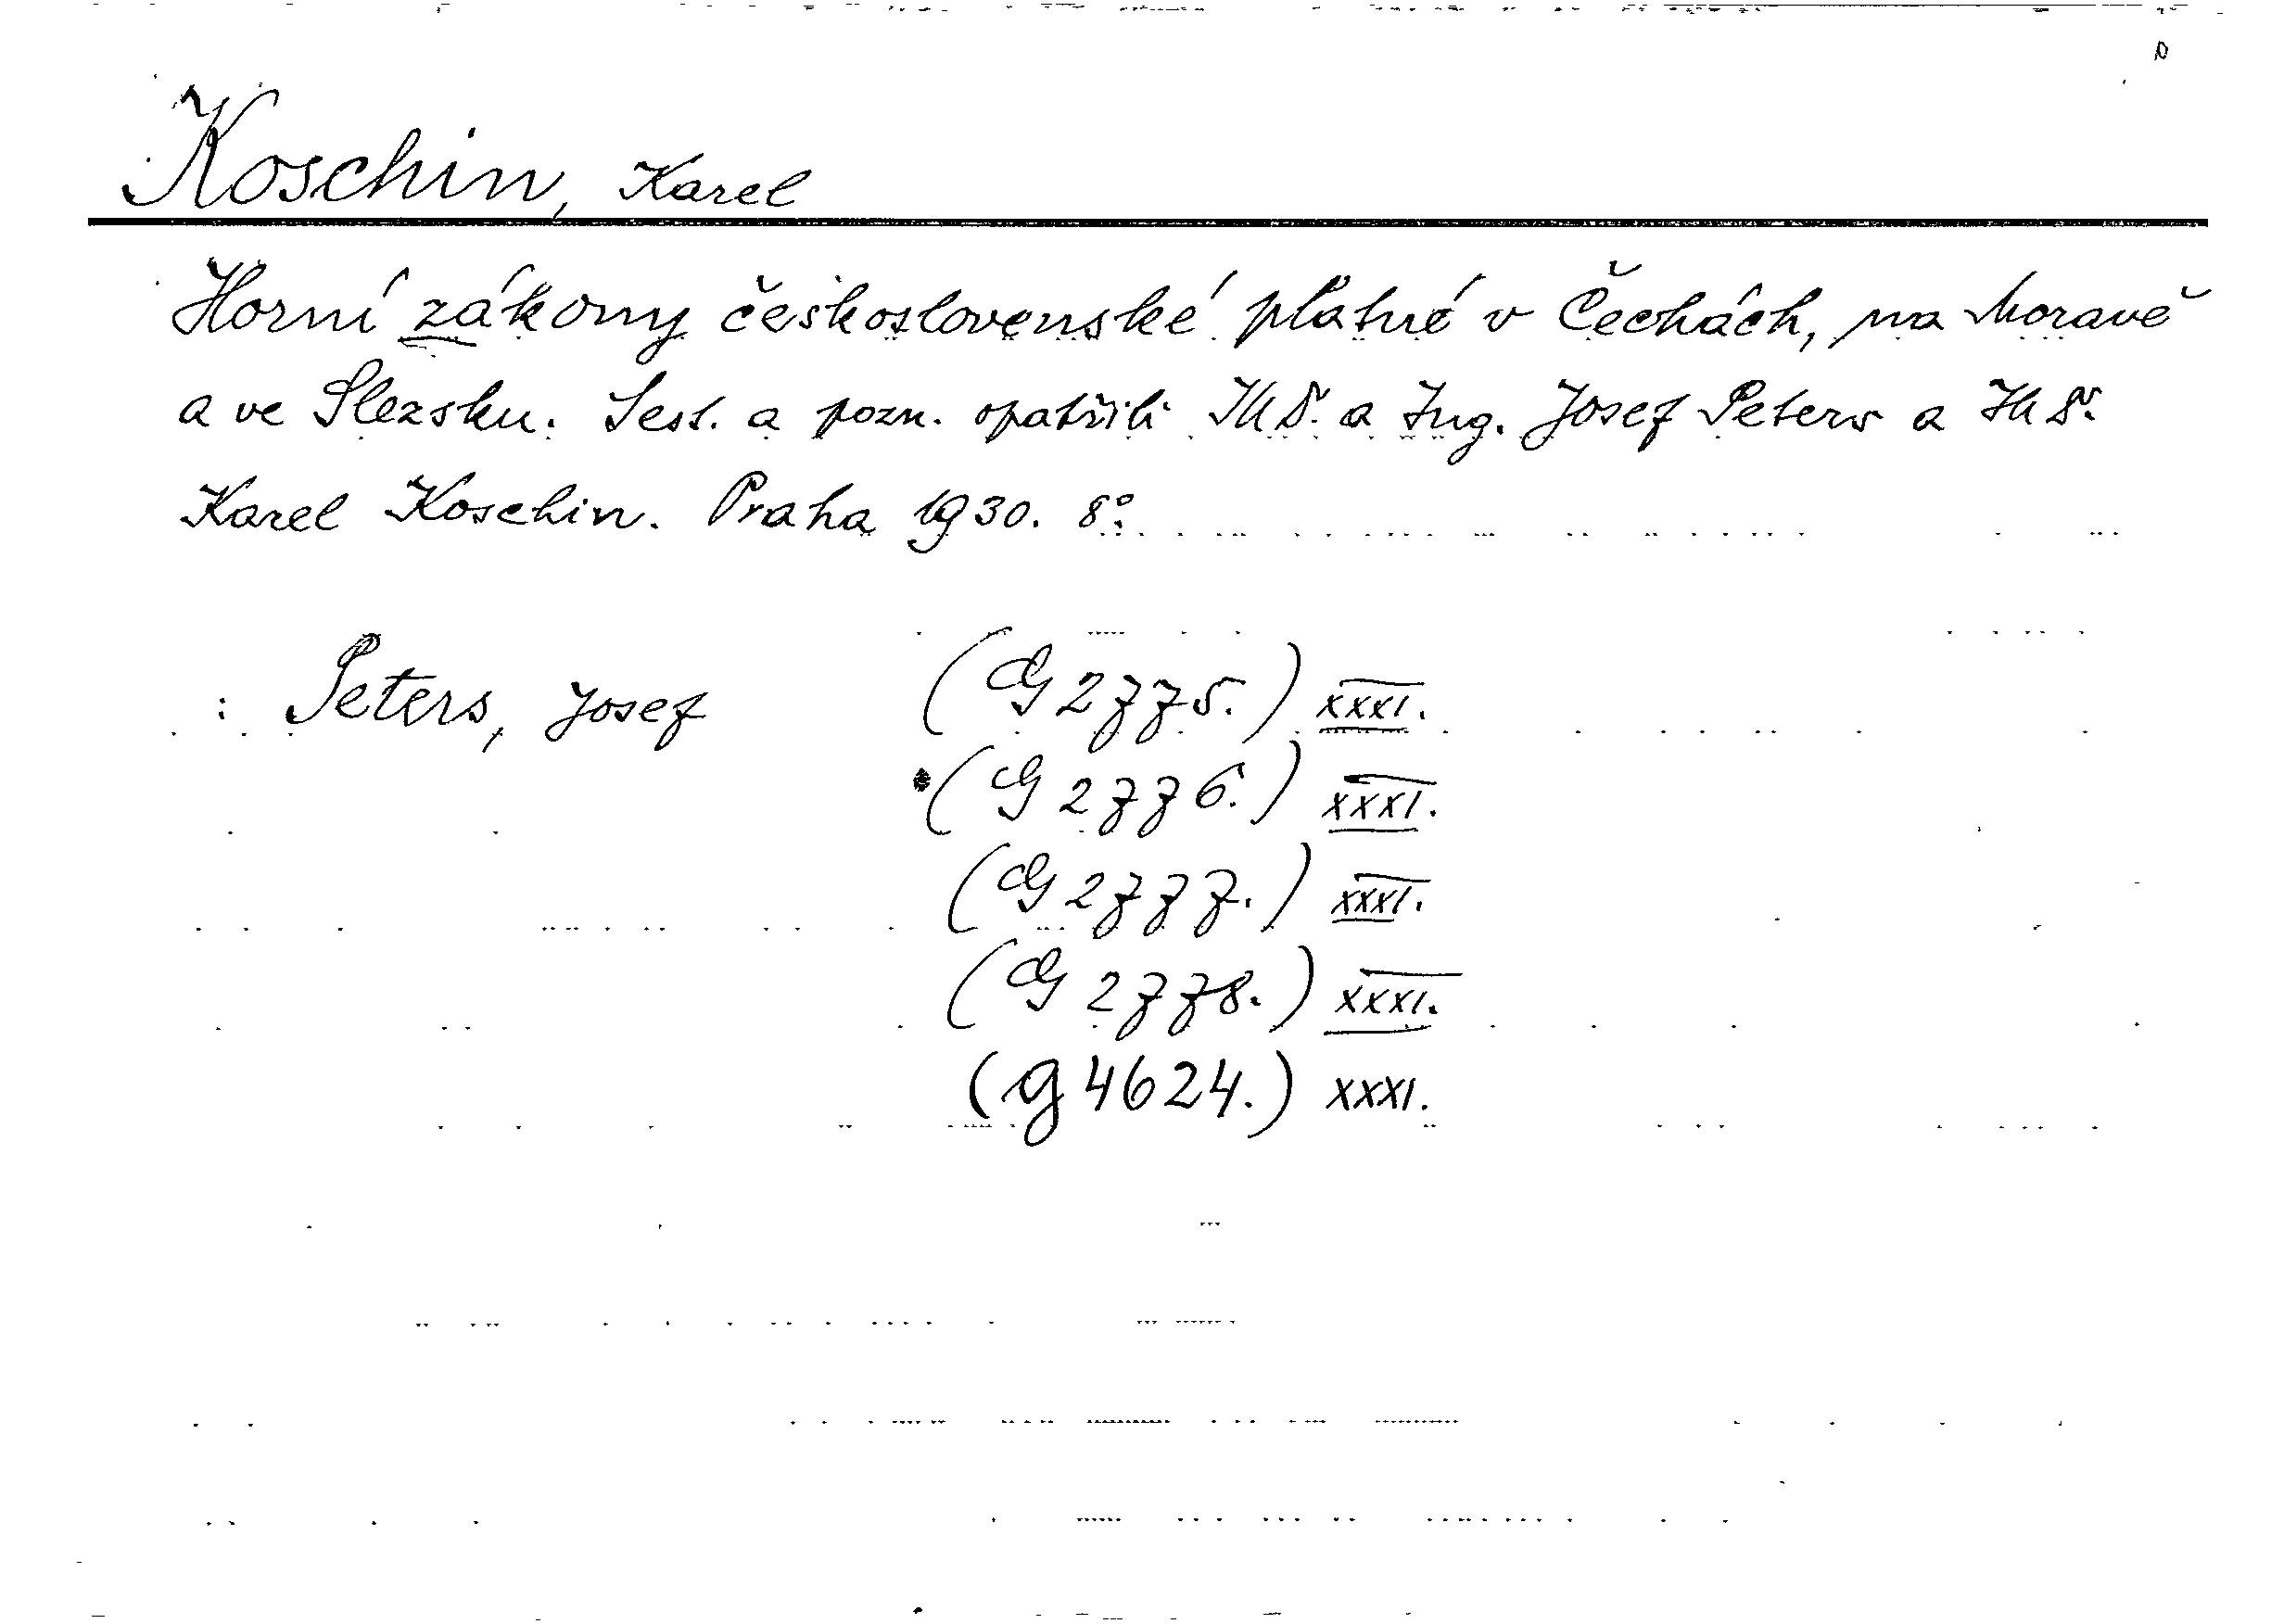 Koschin, Karel
Horní zákony československé platné v Čechách, na Moravě
a ve Slezsku. Sest. a pozn. opatřili JUDr. a Ing. Josef Peters a JUDr.
Karel Koschin. Praha 1930. 8°.
: Peters, Josef (G 2775.) XXXI.
(G 2776.) XXXI.
(G 2777.) XXXI.
(G 2778.) XXXI.
(g 4624.) XXXI.